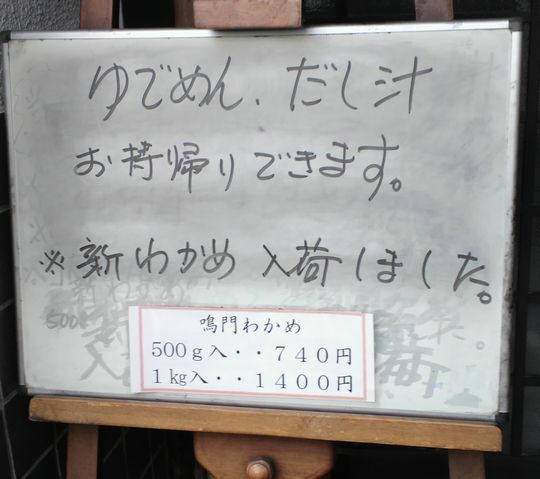 ゆでめん、だし汁
お持帰りできます。
※新わかめ入荷しました。
500
鳴門わかめ
500g入・・740円
1kg入・・1400円